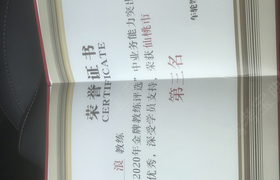 荣誉证书
CERTIFICATE
浪 教练
2020年金牌教练评选"中业务能力突出
优秀，深受学员支持，荣获仙桃市
第三名